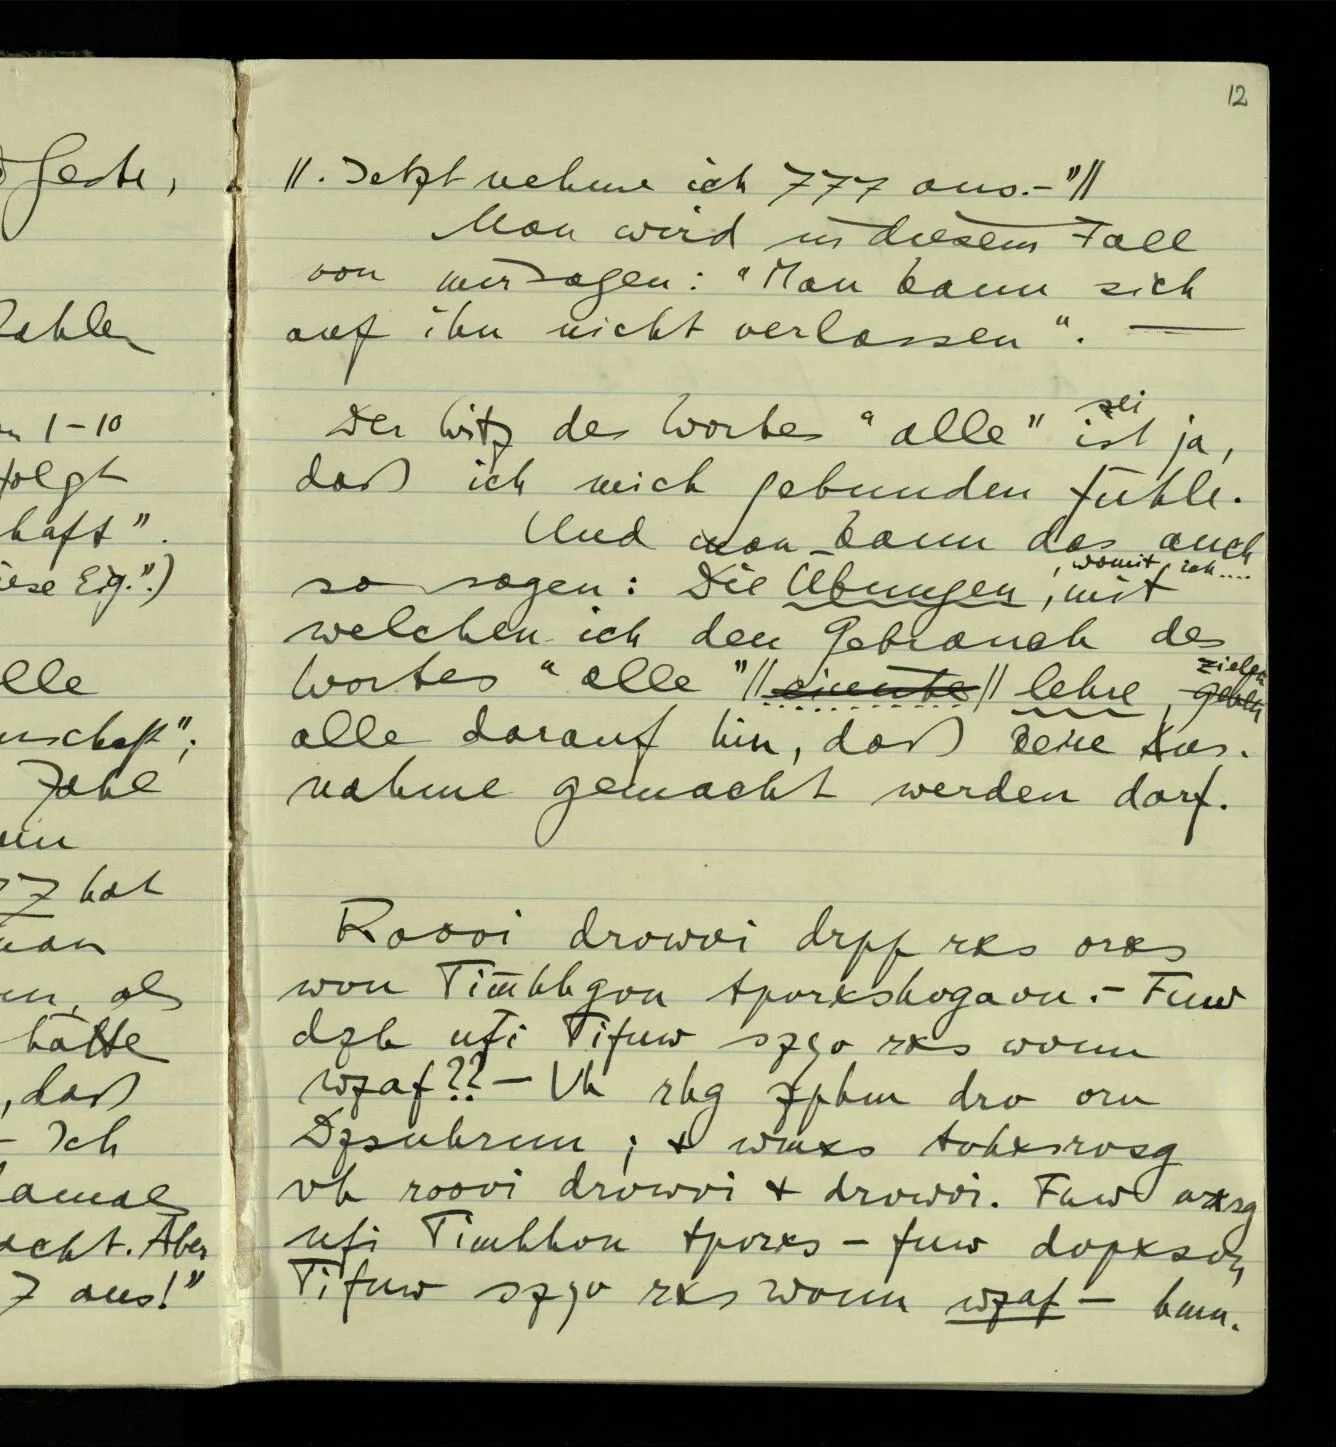 Geste,
Zahlen
1–10
folgt
haft".
iese Eig.".)
elle
enschaft";
Zahl
77 hat
man
als
hätte
, daß
– Ich
damals
acht. Aber
7 aus!"
12
//. Jetzt nehme ich 777 aus.–"//
Man wird in diesem Fall
von mir sagen: "Man kann sich
auf ihn nicht verlassen". —
sei
Der Witz des Wortes "alle" ist ja,
daß ich mich gebunden fühle.
Und man kann das auch
, womit ich....
so sagen: Die Übungen, mit
welchen ich den Gebrauch des
zielen
Wortes "alle" // // lehre, gehen
alle darauf hin, daß keine Aus-
nahme gemacht werden darf.
Roovi drowvi drpf rxs orxs
won Timhhgon tporxshogaon.– Fuw
dzh ufi Tifuw szgo rxs wonn
wzaf??– Vh rhg zphm dro orn
Dzsuhrnn; + wmxs tohxsrosg
vh roovi drowvi + drowvi. Fuw
ufi Timhhon tporxs – fuw
Tifuw szgo rxs wonn wzaf – hmn.